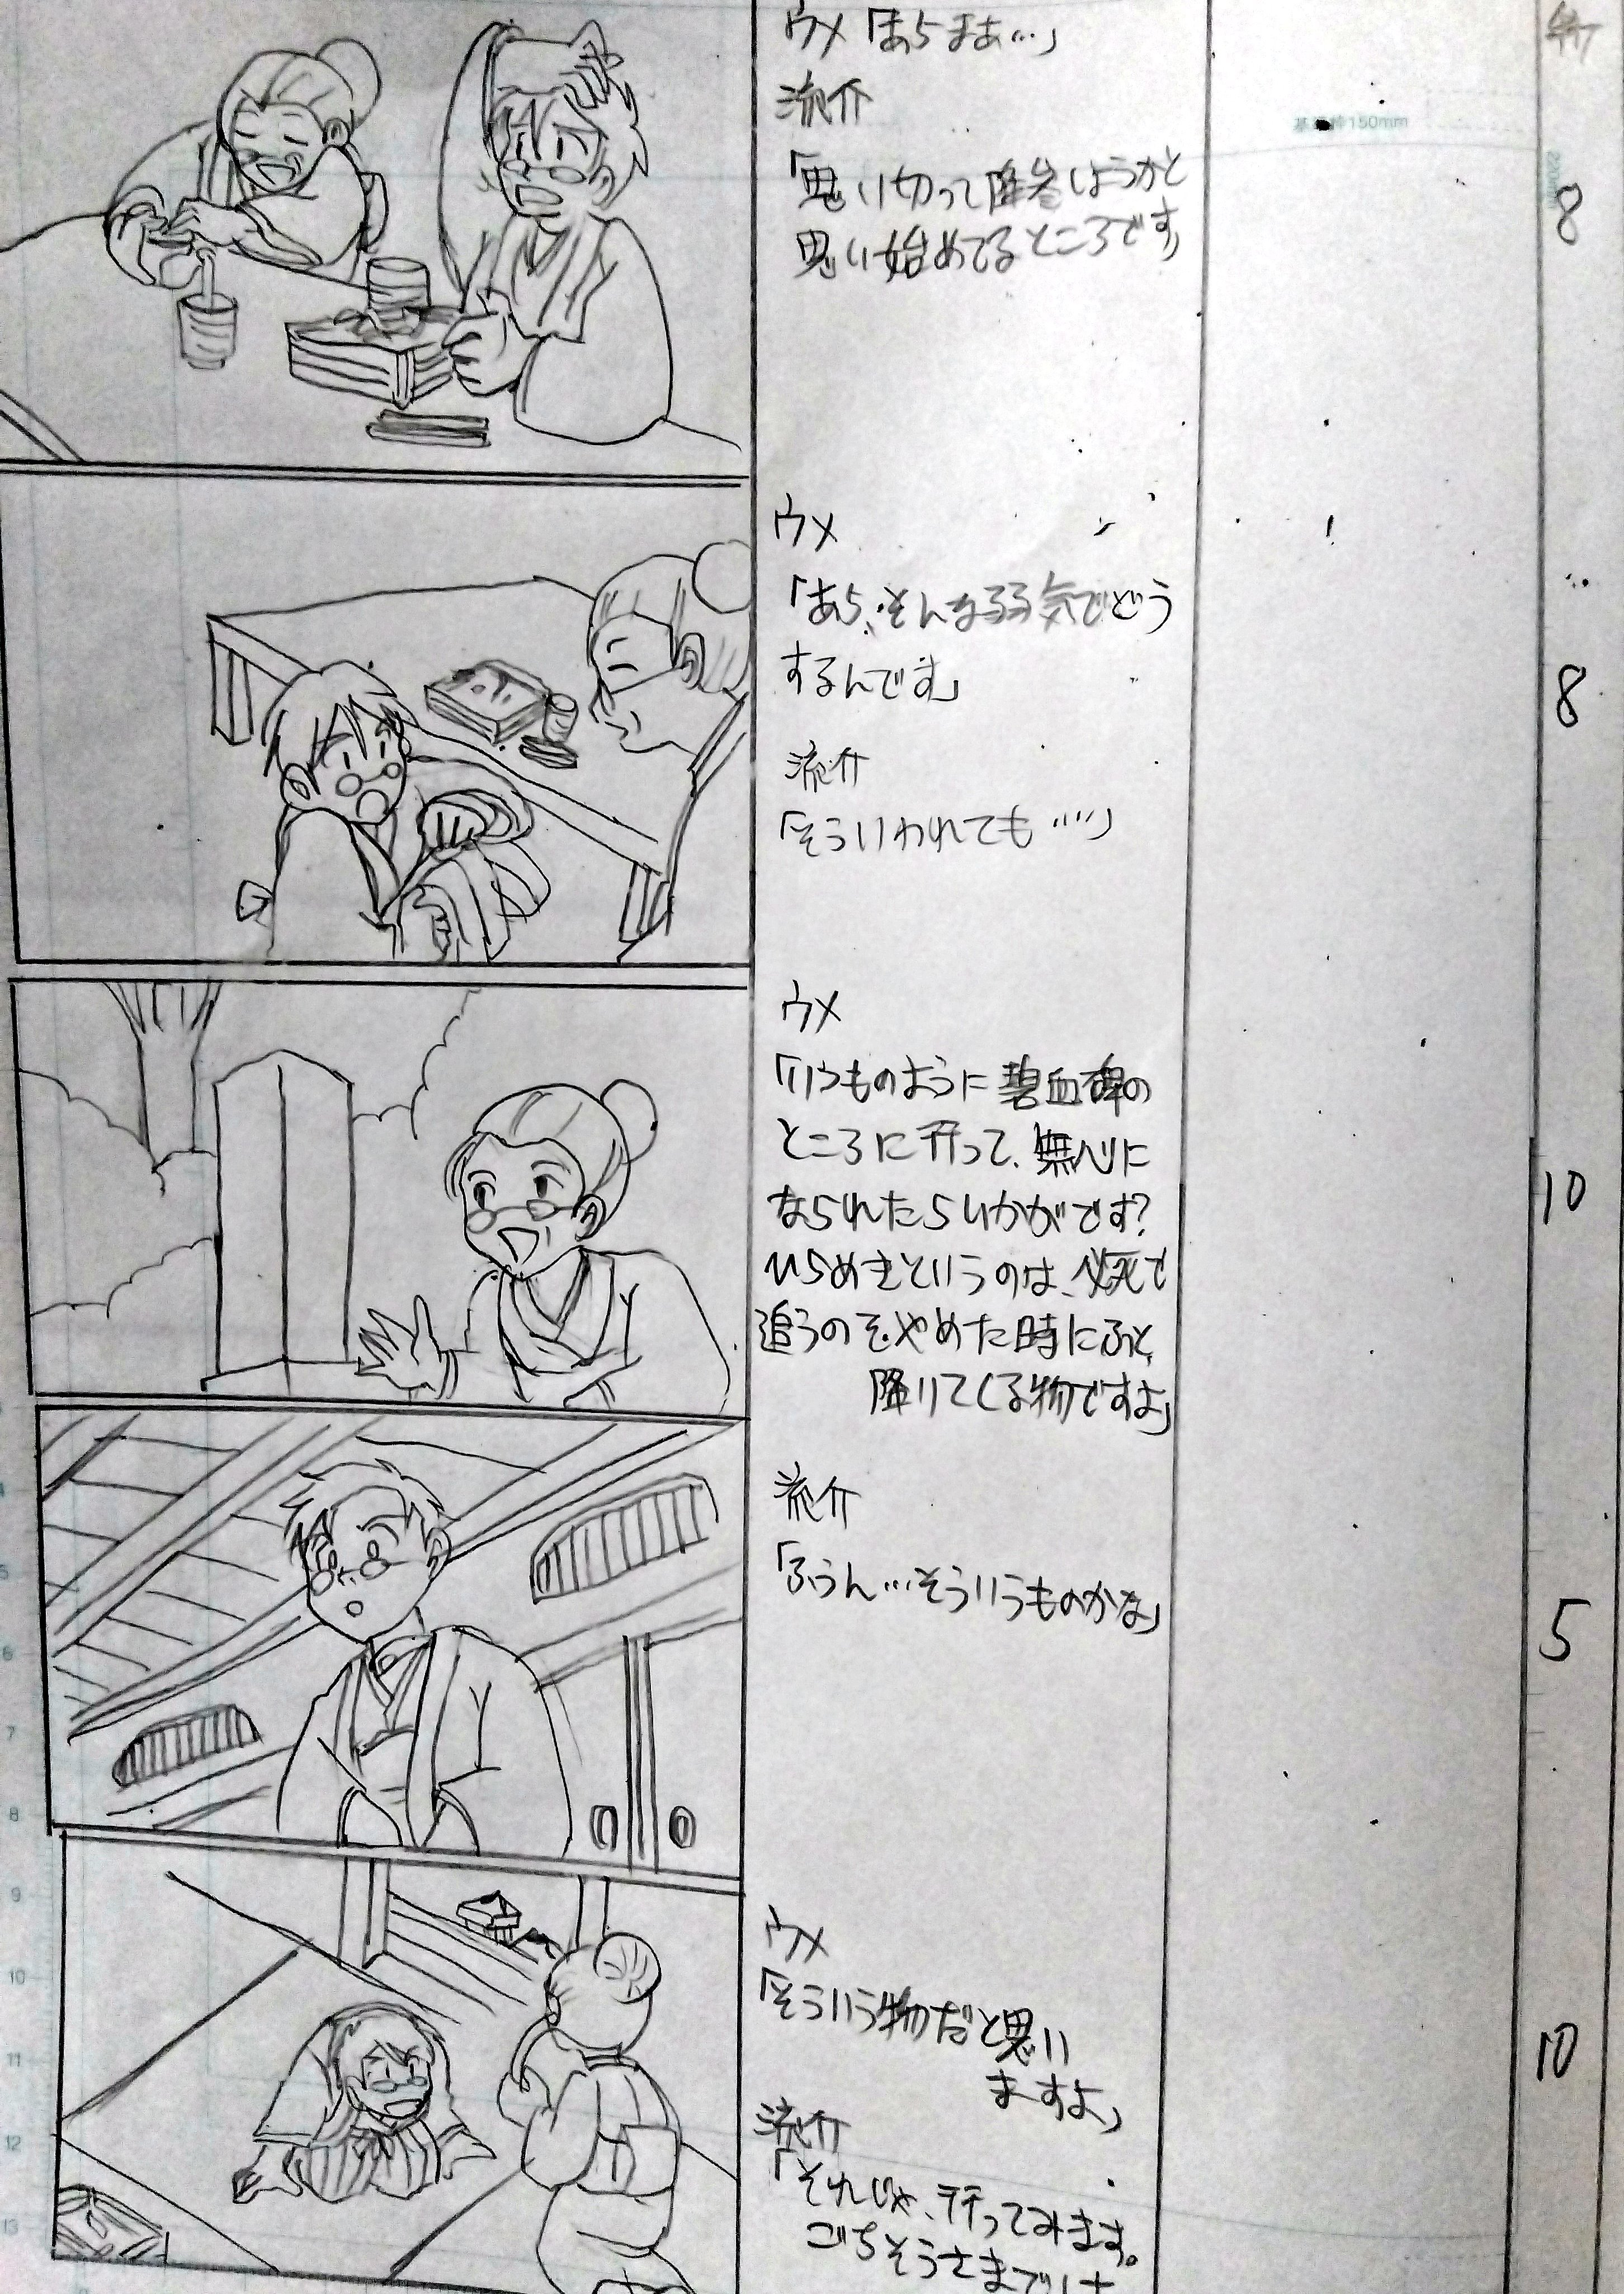 ウメ「あらまあ…」
流介
「思い切って降参しようかと
思い始めてるところです」
8
ウメ
「あら、そんな弱気でどう
するんです」
流介
「そういわれても……」
8
ウメ
「いつものように碧血碑の
ところに行って、無心に
なられたらいかがです?
ひらめきというのは、必死で
追うのをやめた時にふと、
降りてくる物ですよ」
10
流介
「ふうん…そういうものかな」
5
ウメ
「そういう物だと思い
ますよ」
流介
「それじゃ、行ってみます。
ごちそうさまでした
10
基準枠150mm
4
5
6
7
8
9
10
11
12
13